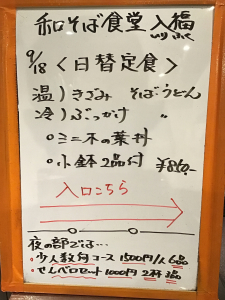 和そば食堂 入福
9/18 <日替定食>
温) きざみ そば・うどん
冷) ぶっかけ 〃
○ミニ木の葉丼
○小鉢2品付 ¥850-
入口こちら
夜の部では…
・少人数旬コース 1500円/人 6品
・せんべロセット 1000円 2杯3品